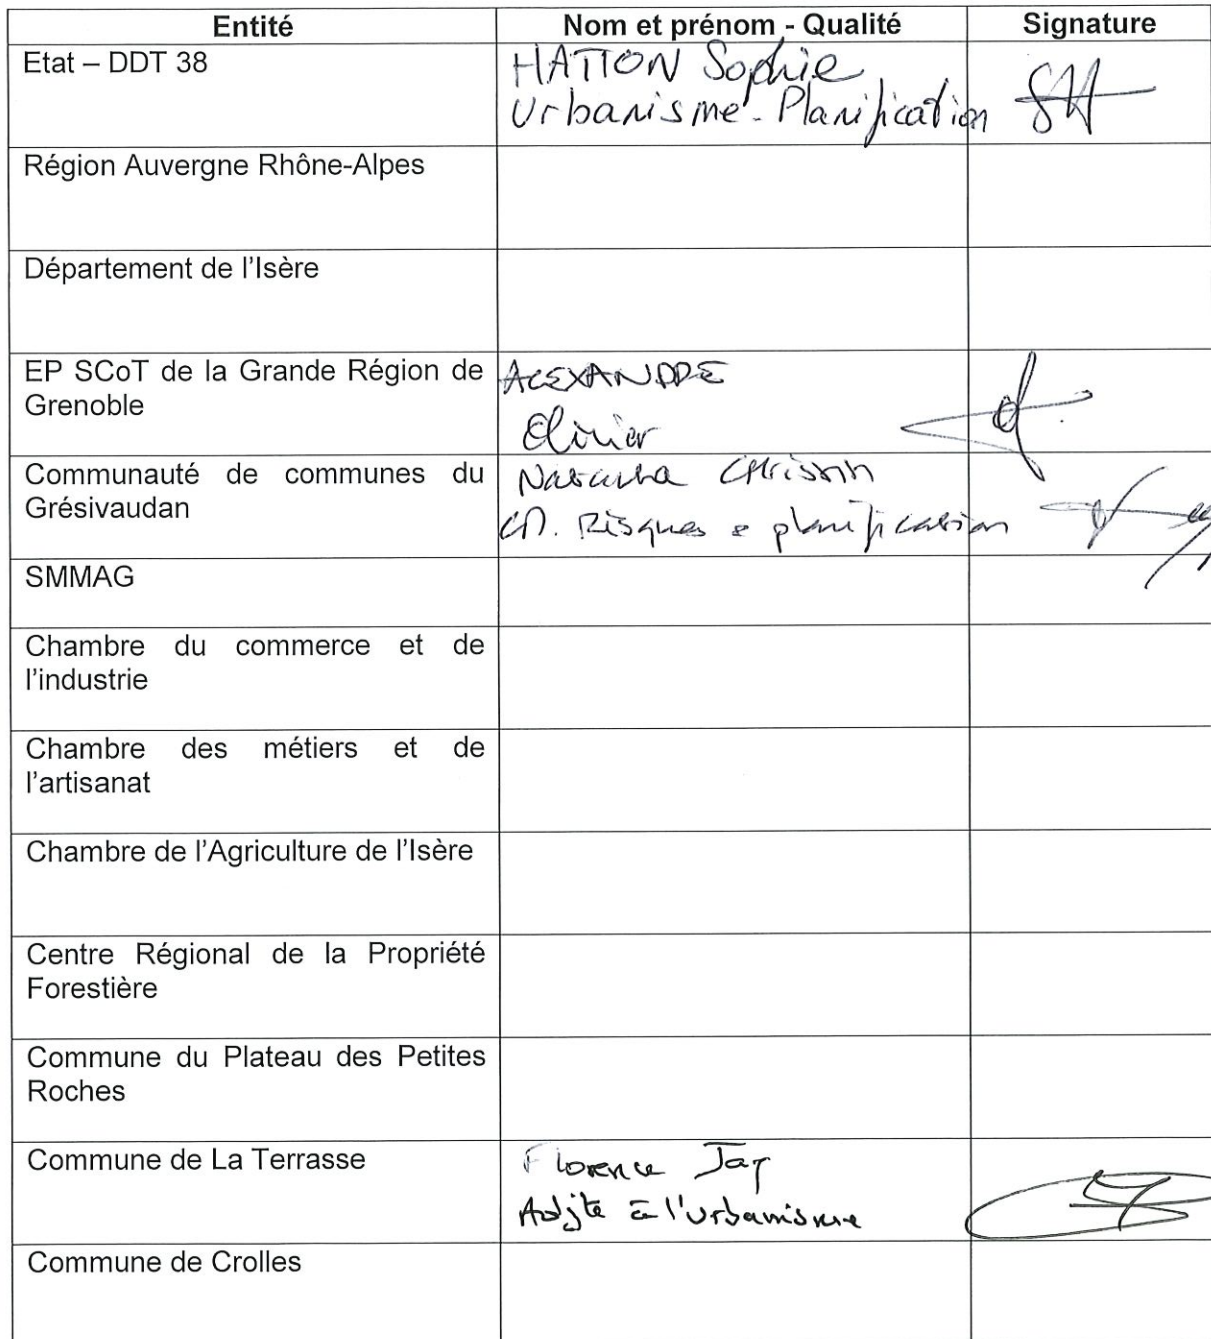 Entité Nom et prénom - Qualité Signature
Etat – DDT 38
HATTON Sophie
Urbanisme - Planification
Région Auvergne Rhône-Alpes
Département de l'Isère
EP SCoT de la Grande Région de
Grenoble
ALEXANDRE
Olivier
Communauté de communes du
Grésivaudan
Natacha
Risques & planification
SMMAG
Chambre du commerce et de
l'industrie
Chambre des métiers et de
l'artisanat
Chambre de l'Agriculture de l'Isère
Centre Régional de la Propriété
Forestière
Commune du Plateau des Petites
Roches
Commune de La Terrasse
Florence Jay
Adjte à l'urbanisme
Commune de Crolles